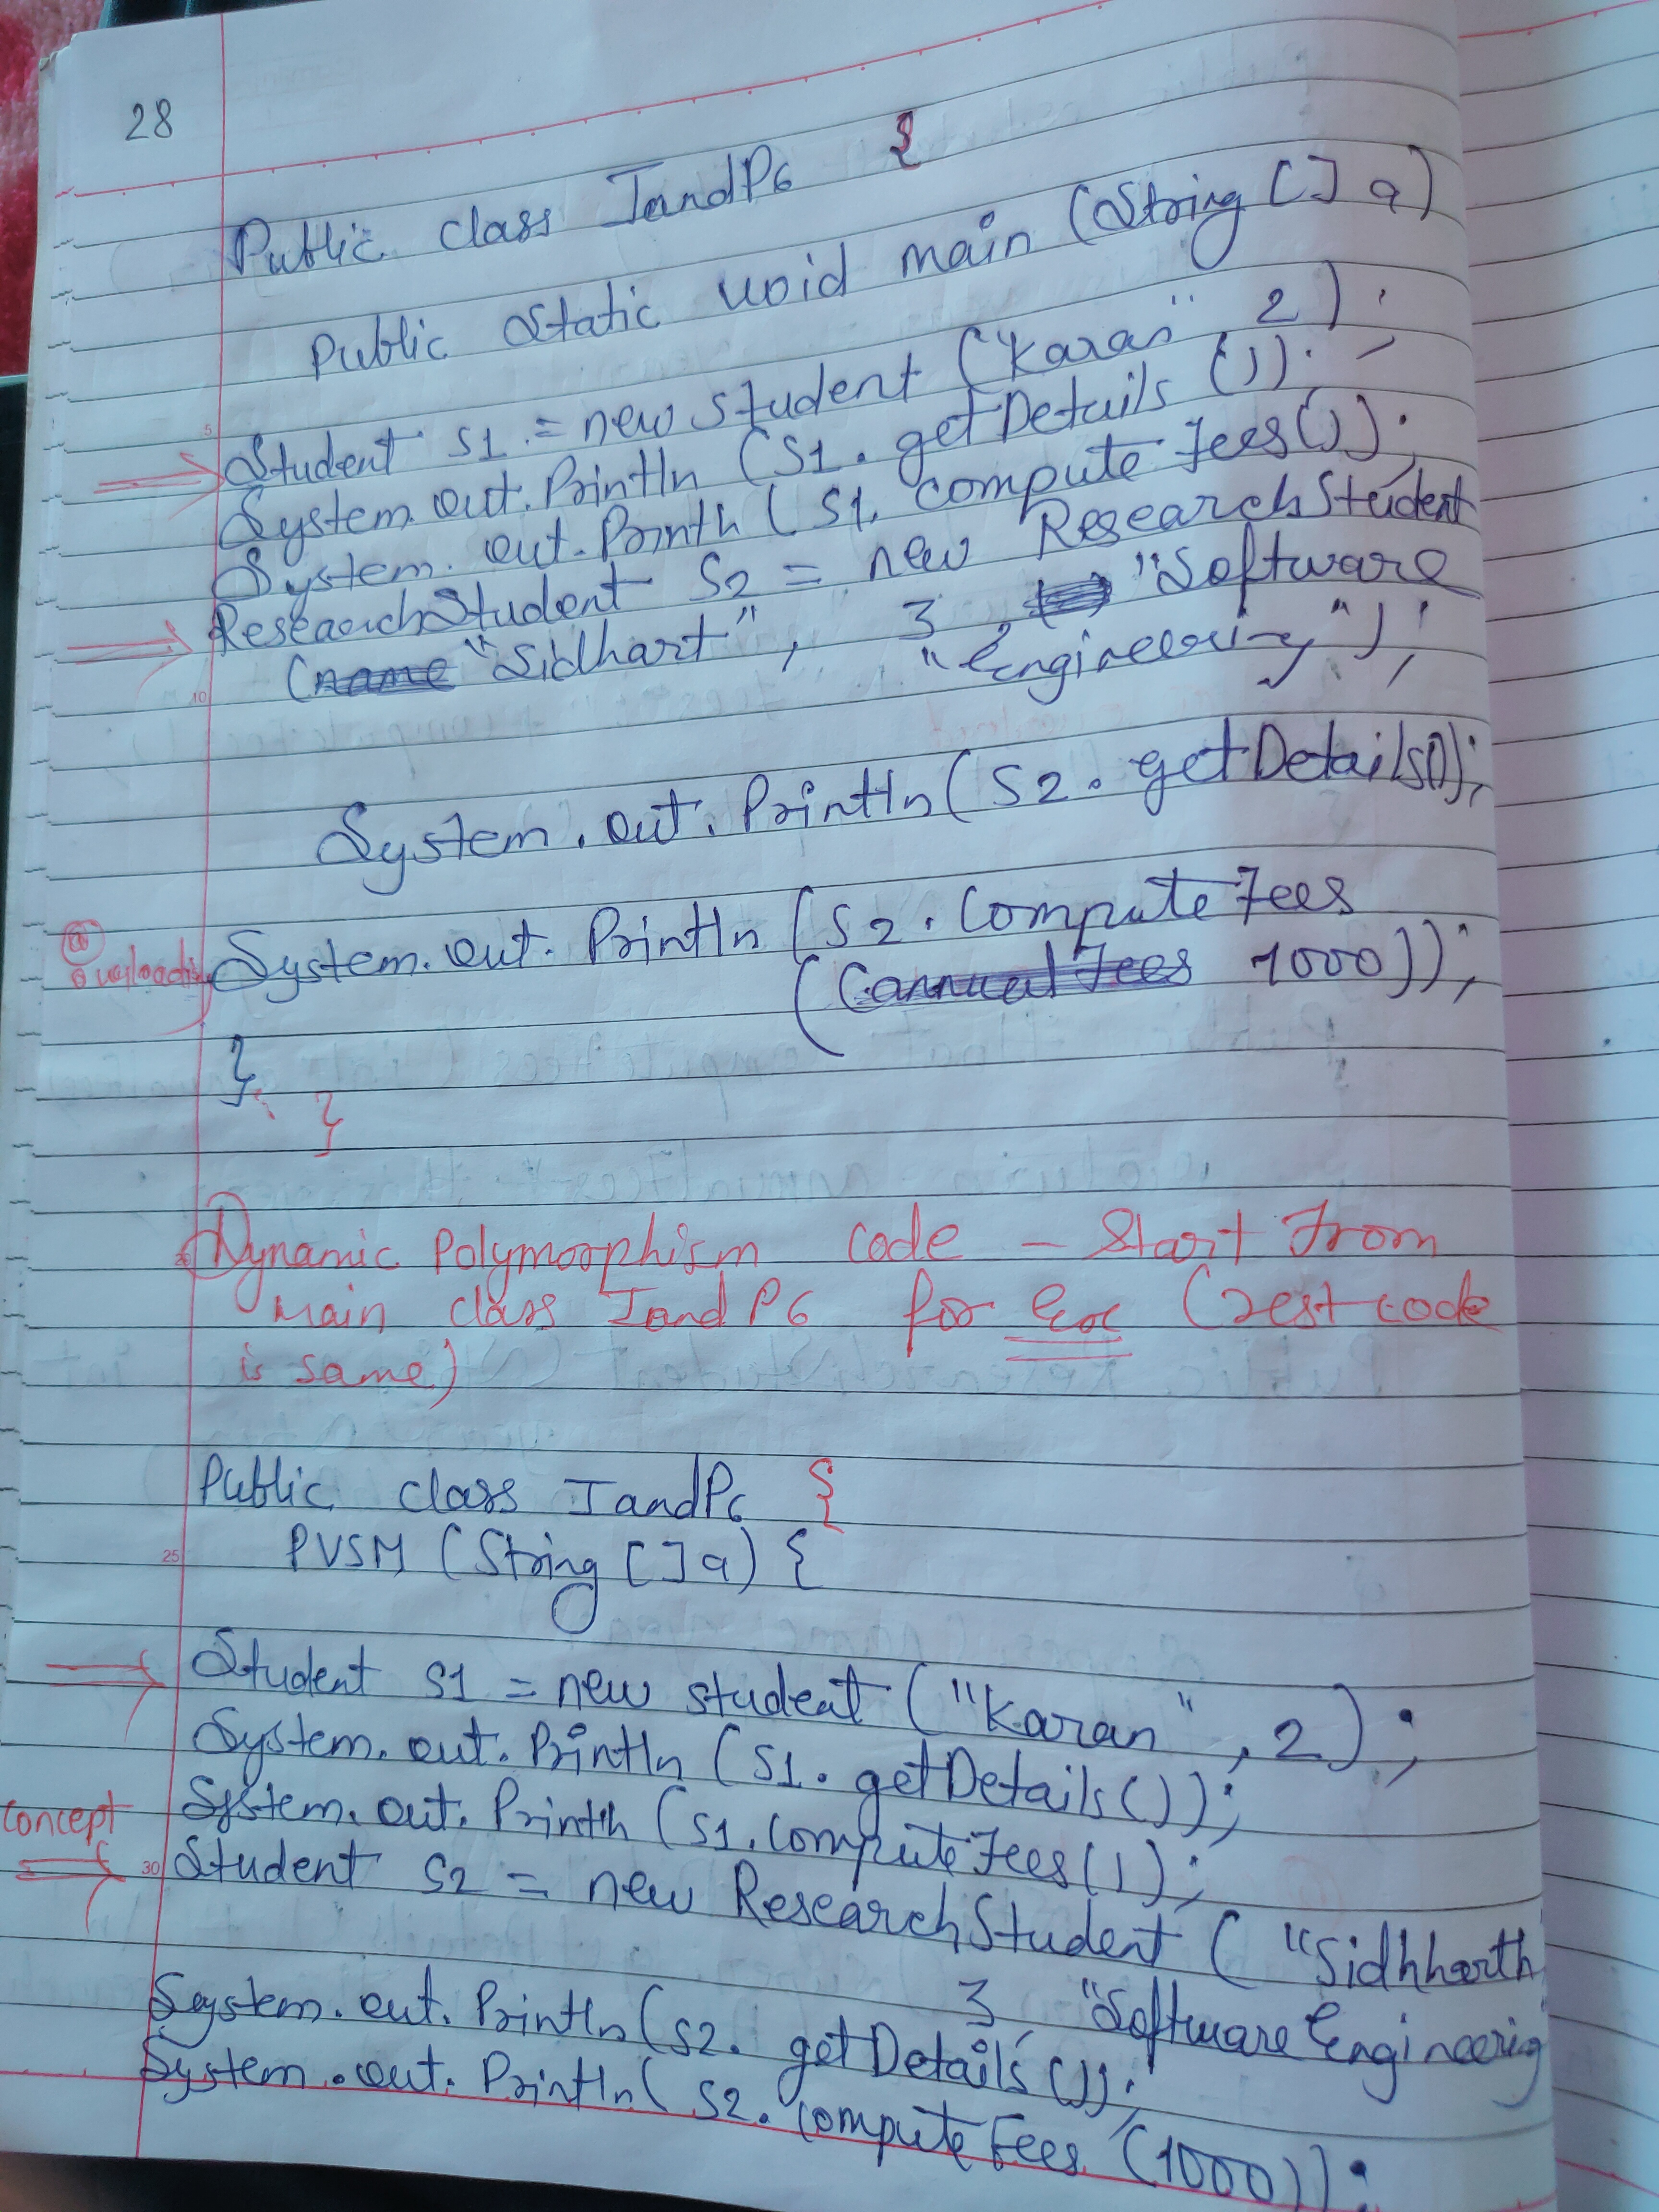 28
Public class IandP6 {
Public static void main (String [] a)
Student s1 = new student ("Karan", 2);
System.out.Println (S1.getDetails ());
System.out.Println (S1.computeFees());
ResearchStudent S2 = new ResearchStudent
("Sidhart", 3, "Software
"Engineering");
System.out.Println(S2.getDetails());
System.out.Println (S2.ComputeFees
(1000));
overloading
}
}
Dynamic Polymorphism code - Start From
main class IandP6 for Exc (rest code
is same)
Public class IandP6 {
PVSM (String [] a) {
Student S1 = new student ("Karan", 2);
System.out.Println (S1.getDetails());
System.out.Println (S1.ComputeFees());
concept
Student S2 = new ResearchStudent ("Sidhharth
3 "Software Engineering
System.out.Println(S2.getDetails());
System.out.Println(S2.ComputeFees (1000));
5
10
25
30